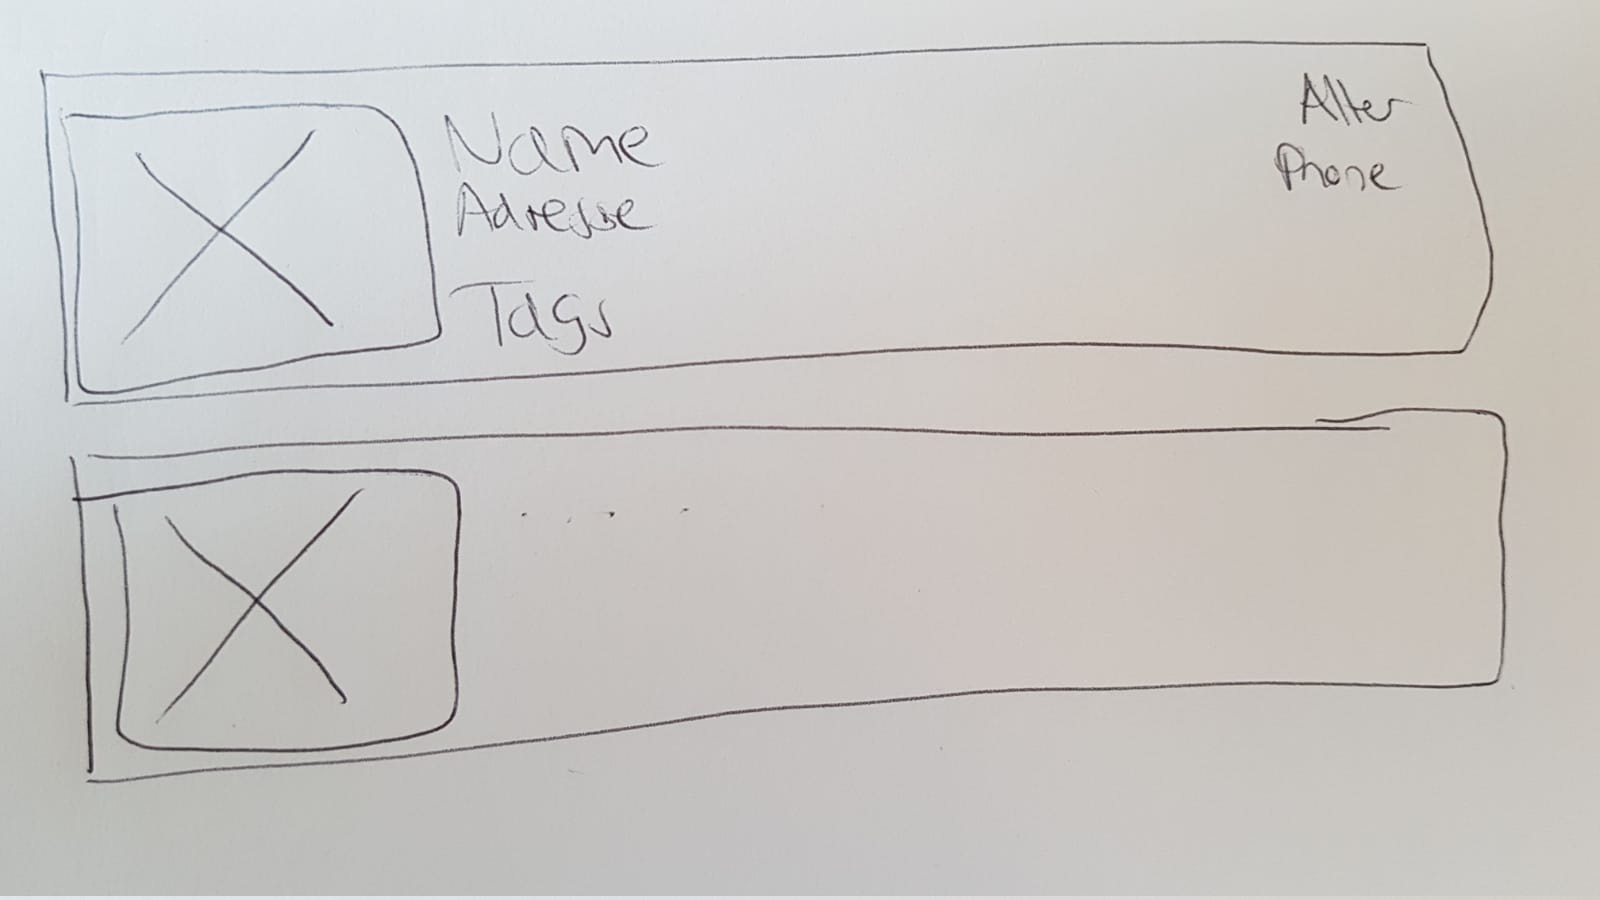 Name
Adresse
Tags
Alter
Phone